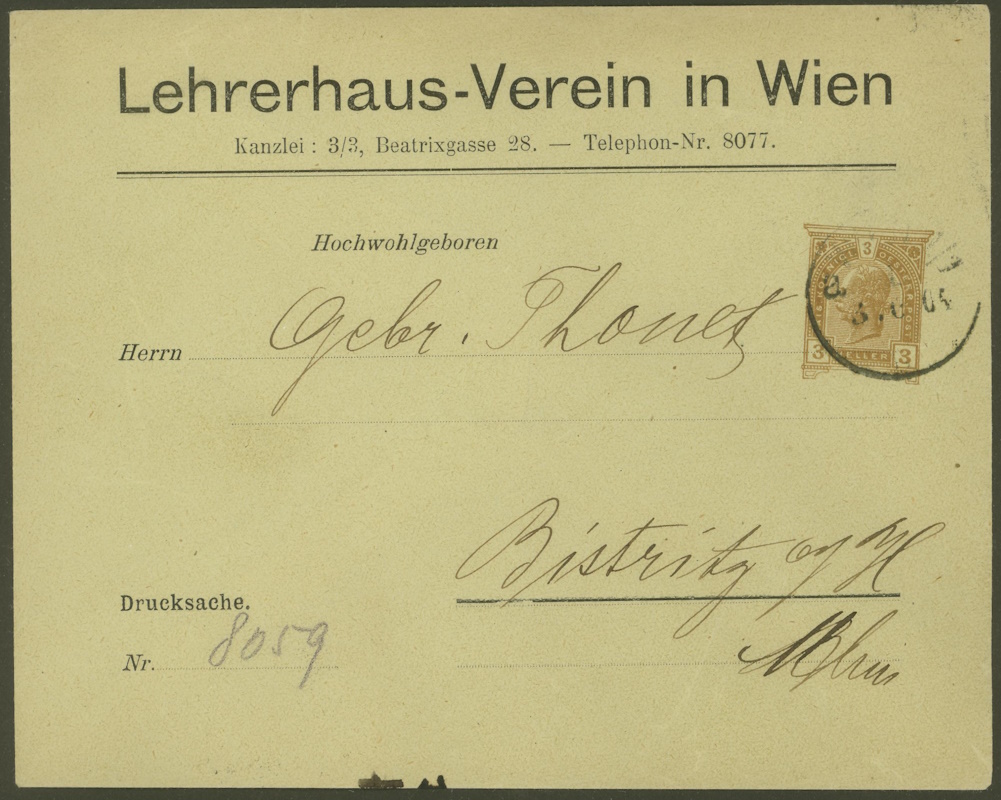 Lehrerhaus-Verein in Wien
Kanzlei: 3/3, Beatrixgasse 28. — Telephon-Nr. 8077.
Hochwohlgeboren
3
Herrn Gebr. Thonet
3 HELLER 3
Bistritz a/H
Drucksache.
Nr. 8059